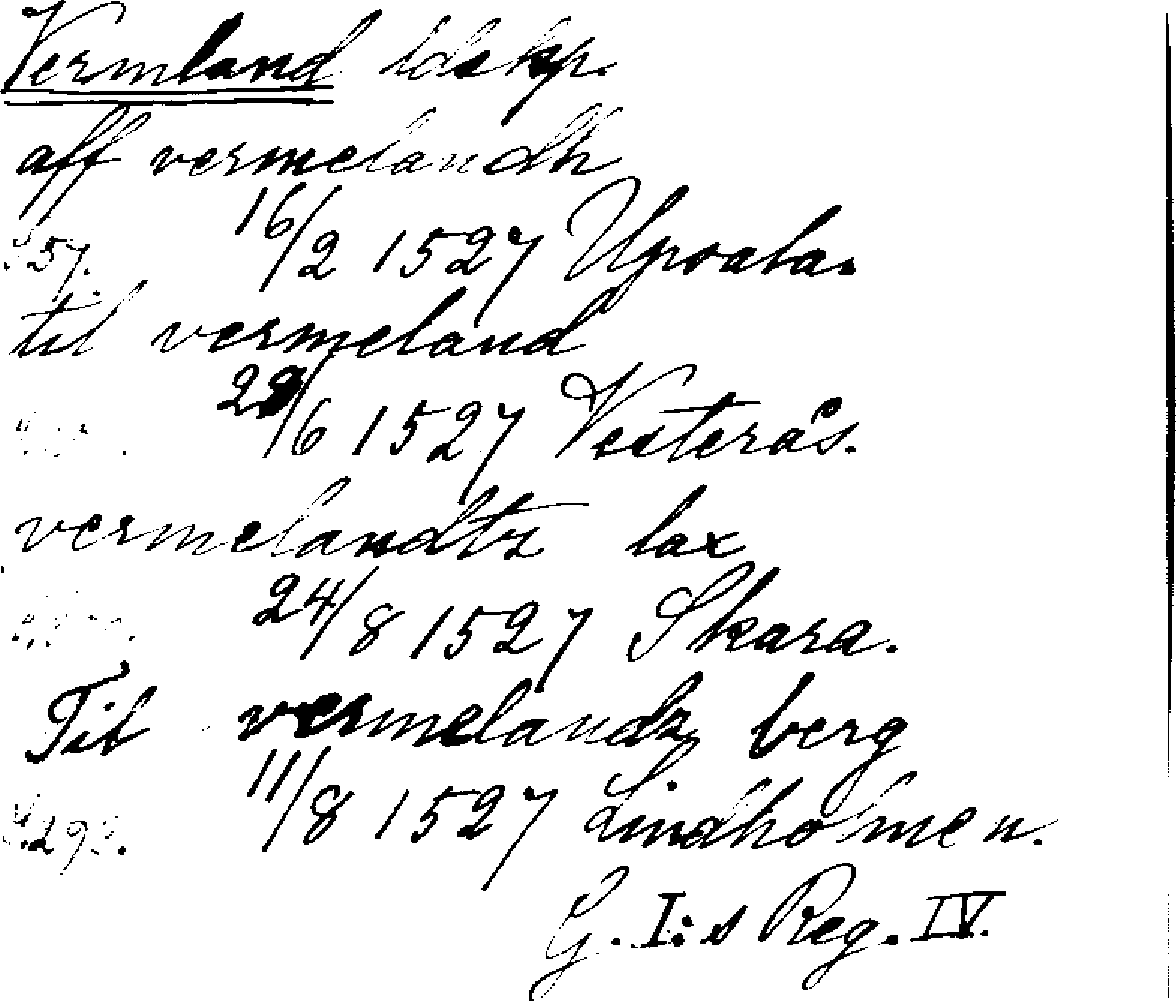 Vermland ldskp.
aff vermelandh
s 57. 16/2 1527 Upsala.
til vermeland
28/6 1527 Vesterås.
vermelandtz lax
24/8 1527 Skara.
Til vermelandz berg
11/8 1527 Lindholmen.
G. I:s Reg. IV.